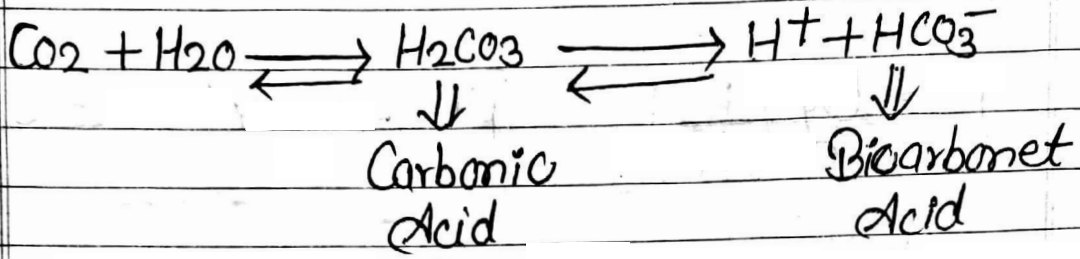 CO2 + H2O ⇌ H2CO3 ⇌ H+ + HCO3-
⇓ ⇓
Carbonic Bicarbonet
Acid Acid